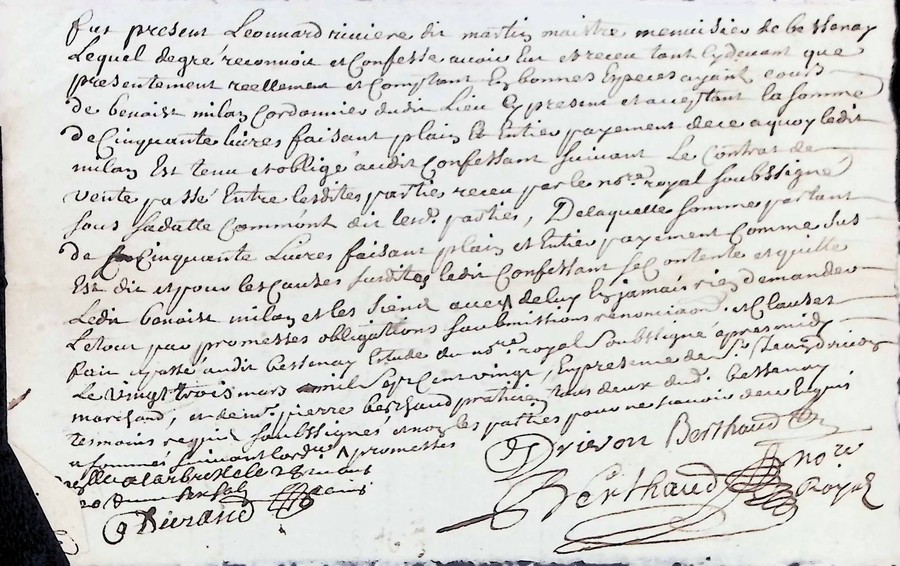 Fut present Leonnard riviere dit martin maistre menuisier de bessenay
Lequel de gré reconnoit et Confesse avoir Eut et receu tant Cydevant que
presentement reellement et Comptant En bonnes Especes ayant cours
de benoist milan Cordonnier dudit Lieu Cy present et acceptant la somme
de Cinquante livres faisant plain Et Entier payement de ce a quoy ledit
milan Est tenu et obligé audit Confessant suivant Le Contrat de
vente passé Entre lesdites parties receu par le nore royal soubssigné
sous sa datte Comm'ont dit lesd. parties, De laquelle somme partant
de Cinquante Livres faisant plain et Entier payement Comme sus
Est dit et pour les Causes susdites ledit Confessant se Contente et quitte
Ledit benoist milan et les siens avec de luy En jamais rien demander
par promesses obligations soubmissions renonciaon. et Clauses
fait et passé audit bessenay Estude du nore royal soubssigné apres midy
Le vingt trois mars mil sept Cent vingt, En presence de Sr. Jean drievon
marchand, et de mr. pierre berthaud praticien tous deux dud. bessenay
tesmoins requis soubssignés et non les parties pour ne scavoir de ce Enquis
et sommés suivant lord. promesses
Drievon Berthaud
Berthaud nore
Royal
Durand